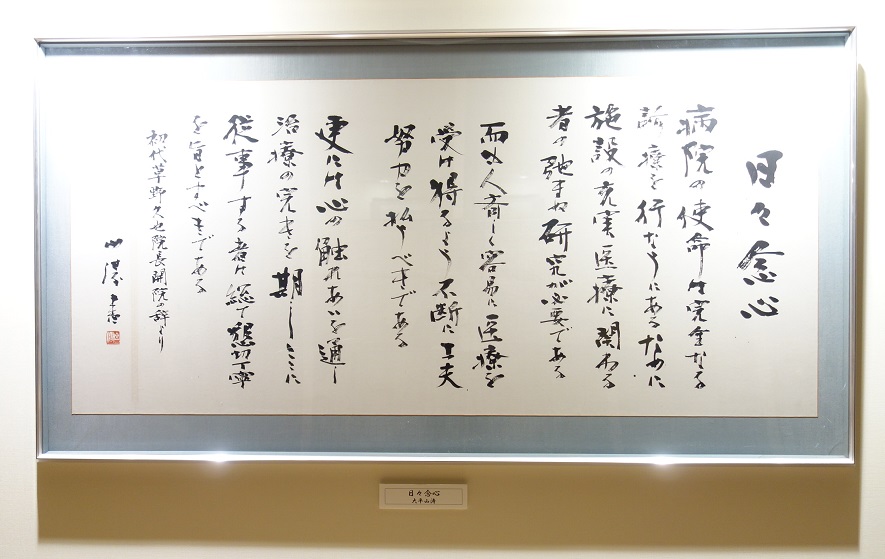 日々念心
病院の使命は完全なる
診療を行なうにあるために
施設の充実医療に関わる
者の弛まぬ研究が必要である
而も人斉しく容易に医療を
受け得るよう不断に工夫
努力を払うべきである
更には心の触れあいを通し
治療の完きを期しここに
従事する者は総て懇切丁寧
を旨とすべきである
初代草野久也院長開院の辞より
日々念心
大平山濤